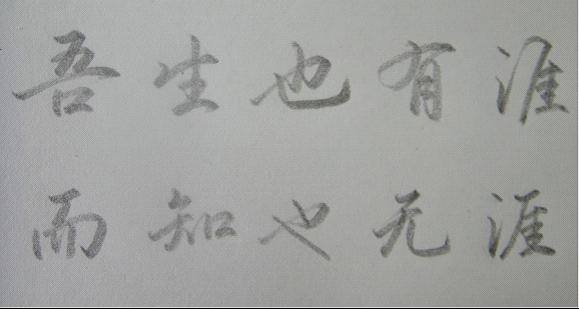 吾生也有涯
而知也无涯